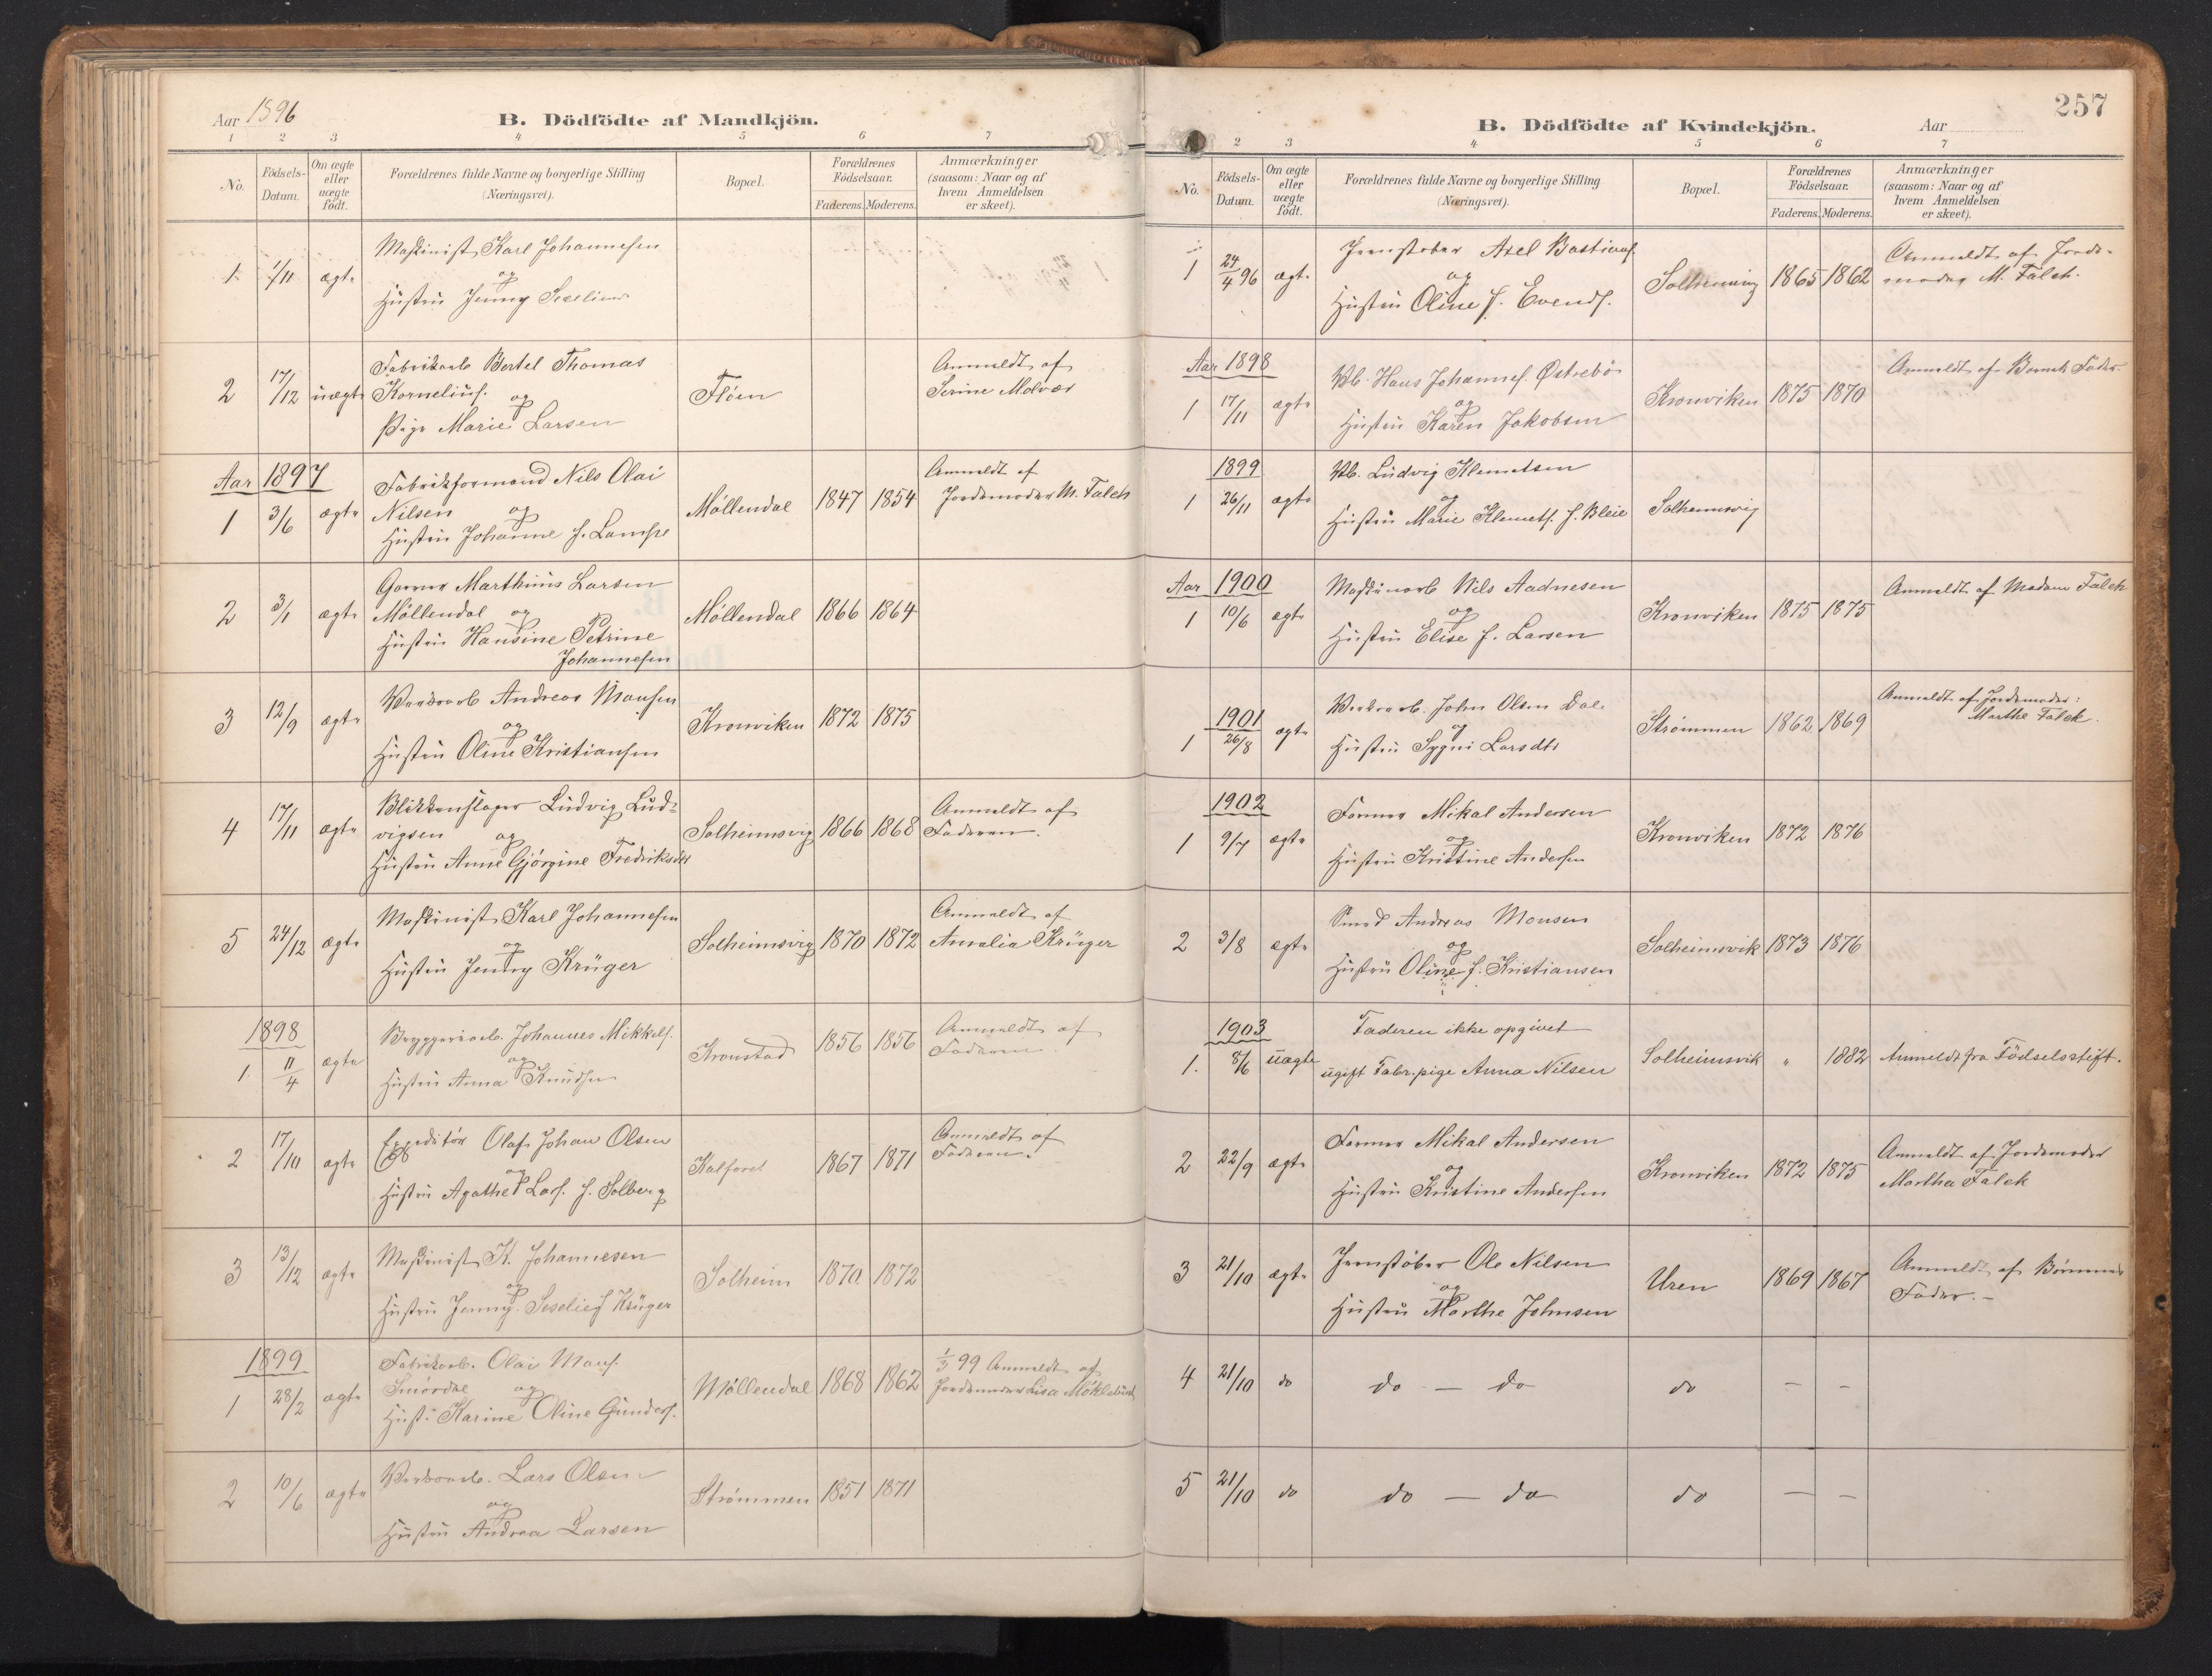 Aar 1896
B. Dödfödte af Mandkjön.
1 2 3 4 5 6 7
No.
Födsels-Datum.
Om ægte eller uægte födt.
Forældrenes fulde Navne og borgerlige Stilling
(Næringsvei).
Bopæl.
Forældrenes Födselsaar.
Faderens. Moderens.
Anmærkninger
(saasom: Naar og af
hvem Anmeldelsen
er skeet).
1 1/11 ægte Maskinist Karl Johannesen
og
Hustru Jenny
2 17/12 uægte Fabrikarb Bertel Thomas
Kornelius.
og
Pige Marie Larsen
Fløen
Anmeldt af
Serine Molvær
Aar 1897
1 3/6 ægte Fabrikformand Nils Olai
Nilsen og
Hustru Johanne f. Lampe
Møllendal 1847 1854
Anmeldt af
Jordemoder M. Falch
2 3/1 ægte Garver Marthinus Larsen
Møllendal og
Hustru Hansine Petrine
Johannesen
Møllendal 1866 1864
3 12/9 ægte Værksarb Andreas Monsen
og
Hustru Oline Kristiansen
Kronviken 1872 1875
4 17/11 ægte Blikkenslager Ludvig Lud-
vigsen og
Hustru Anne Gjørgine Fredriksdtr
Solheimsvig 1866 1868
Anmeldt af
Faderen.
5 24/12 ægte Maskinist Karl Johannesen
og
Hustru Jenny Krüger
Solheimsvig 1870 1872
Anmeldt af
Amalia Krüger
1898
1. 11/4 ægte Bryggeriarb. Johannes Mikkels.
og
Hustru Anna Knudsen
Kronstad 1856 1856
Anmeldt af
Faderen
2 17/10 ægte Expeditør Olaf Johan Olsen
og
Hustru Agathe Lars. f. Solberg
Kalfaret 1867 1871
Anmeldt af
Faderen.
3 13/12 ægte Maskinist K. Johannesen
og
Hustru Jenny Seselie f Krüger
Solheim 1870. 1872
1899
1 28/2 ægte Fabrikarb. Olai Mons.
Smørdal og
Hust: Karine Oline Gunders.
Møllendal 1868 1862
1/3 99 Anmeldt af
Jordemoder Lisa Møklebust
2 10/6 ægte Værksarb. Lars Olsen
og
Hustru Andrea Larsen
Strømmen 1851 1871
257
B. Dödfödte af Kvindekjön.
Aar
2 3 4 5 6 7
No.
Födsels-Datum.
Om ægte eller uægte födt.
Forældrenes fulde Navne og borgerlige Stilling
(Næringsvei).
Bopæl.
Forældrenes Födselsaar.
Faderens. Moderens.
Anmærkninger
(saasom: Naar og af
hvem Anmeldelsen
er skeet).
1 24/4 96 ægte Jernstøber Axel Bastians.
og
Hustru Oline f. Evends.
1865 1862
Anmeldt af Jorde-
moder M. Falch.
Aar 1898
1 17/11 ægte Hans Johannes. Østrebø
og
Hustru Karen Jakobsen
Kronviken 1875 1870
Anmeldt af Barnets Fader
1899
1 26/11 ægte Ludvig Klemetsen
og
Hustru Marie Klemets. f. Bleie
Solheimsvig
Aar 1900
1 10/6 ægte Maskinarb Nils Aadnesen
og
Hustru Elise f. Larsen
Kronviken 1875 1875
Anmeldt af Madam Falch
1901
1 26/8 ægte Værksarb. John Olsen Dale
og
Hustru Sygni Larsdtr
Strømmen 1862 1869
Anmeldt af Jordemoder:
Marthe Falch.
1902
1 9/7 ægte Former Mikal Andersen
og
Hustru Kristine Andersen
Kronviken 1872 1876
2 3/8 ægte Smed Andreas Monsen
og
Hustru Oline f. Kristiansen
Solheimsvik 1873 1876
1903
1. 8/6 uægte Faderen ikke opgivet
ugift Fabr.pige Anna Nilsen
Solheimsvik " 1882 Anmeldt fra Födselsstift.
2 22/9 ægte Former Mikal Andersen
og
Hustru Kristine Andersen
Kronviken 1872 1875
Anmeldt af Jordemoder
Martha Falch
3 21/10 ægte Jernstøber Ole Nilsen
og
Hustru Marthe Johnsen
Uren 1869 1867
Anmeldt af Børnenes
Fader.-
4 21/10 do do — do do — —
5 21/10 do do — do do — —